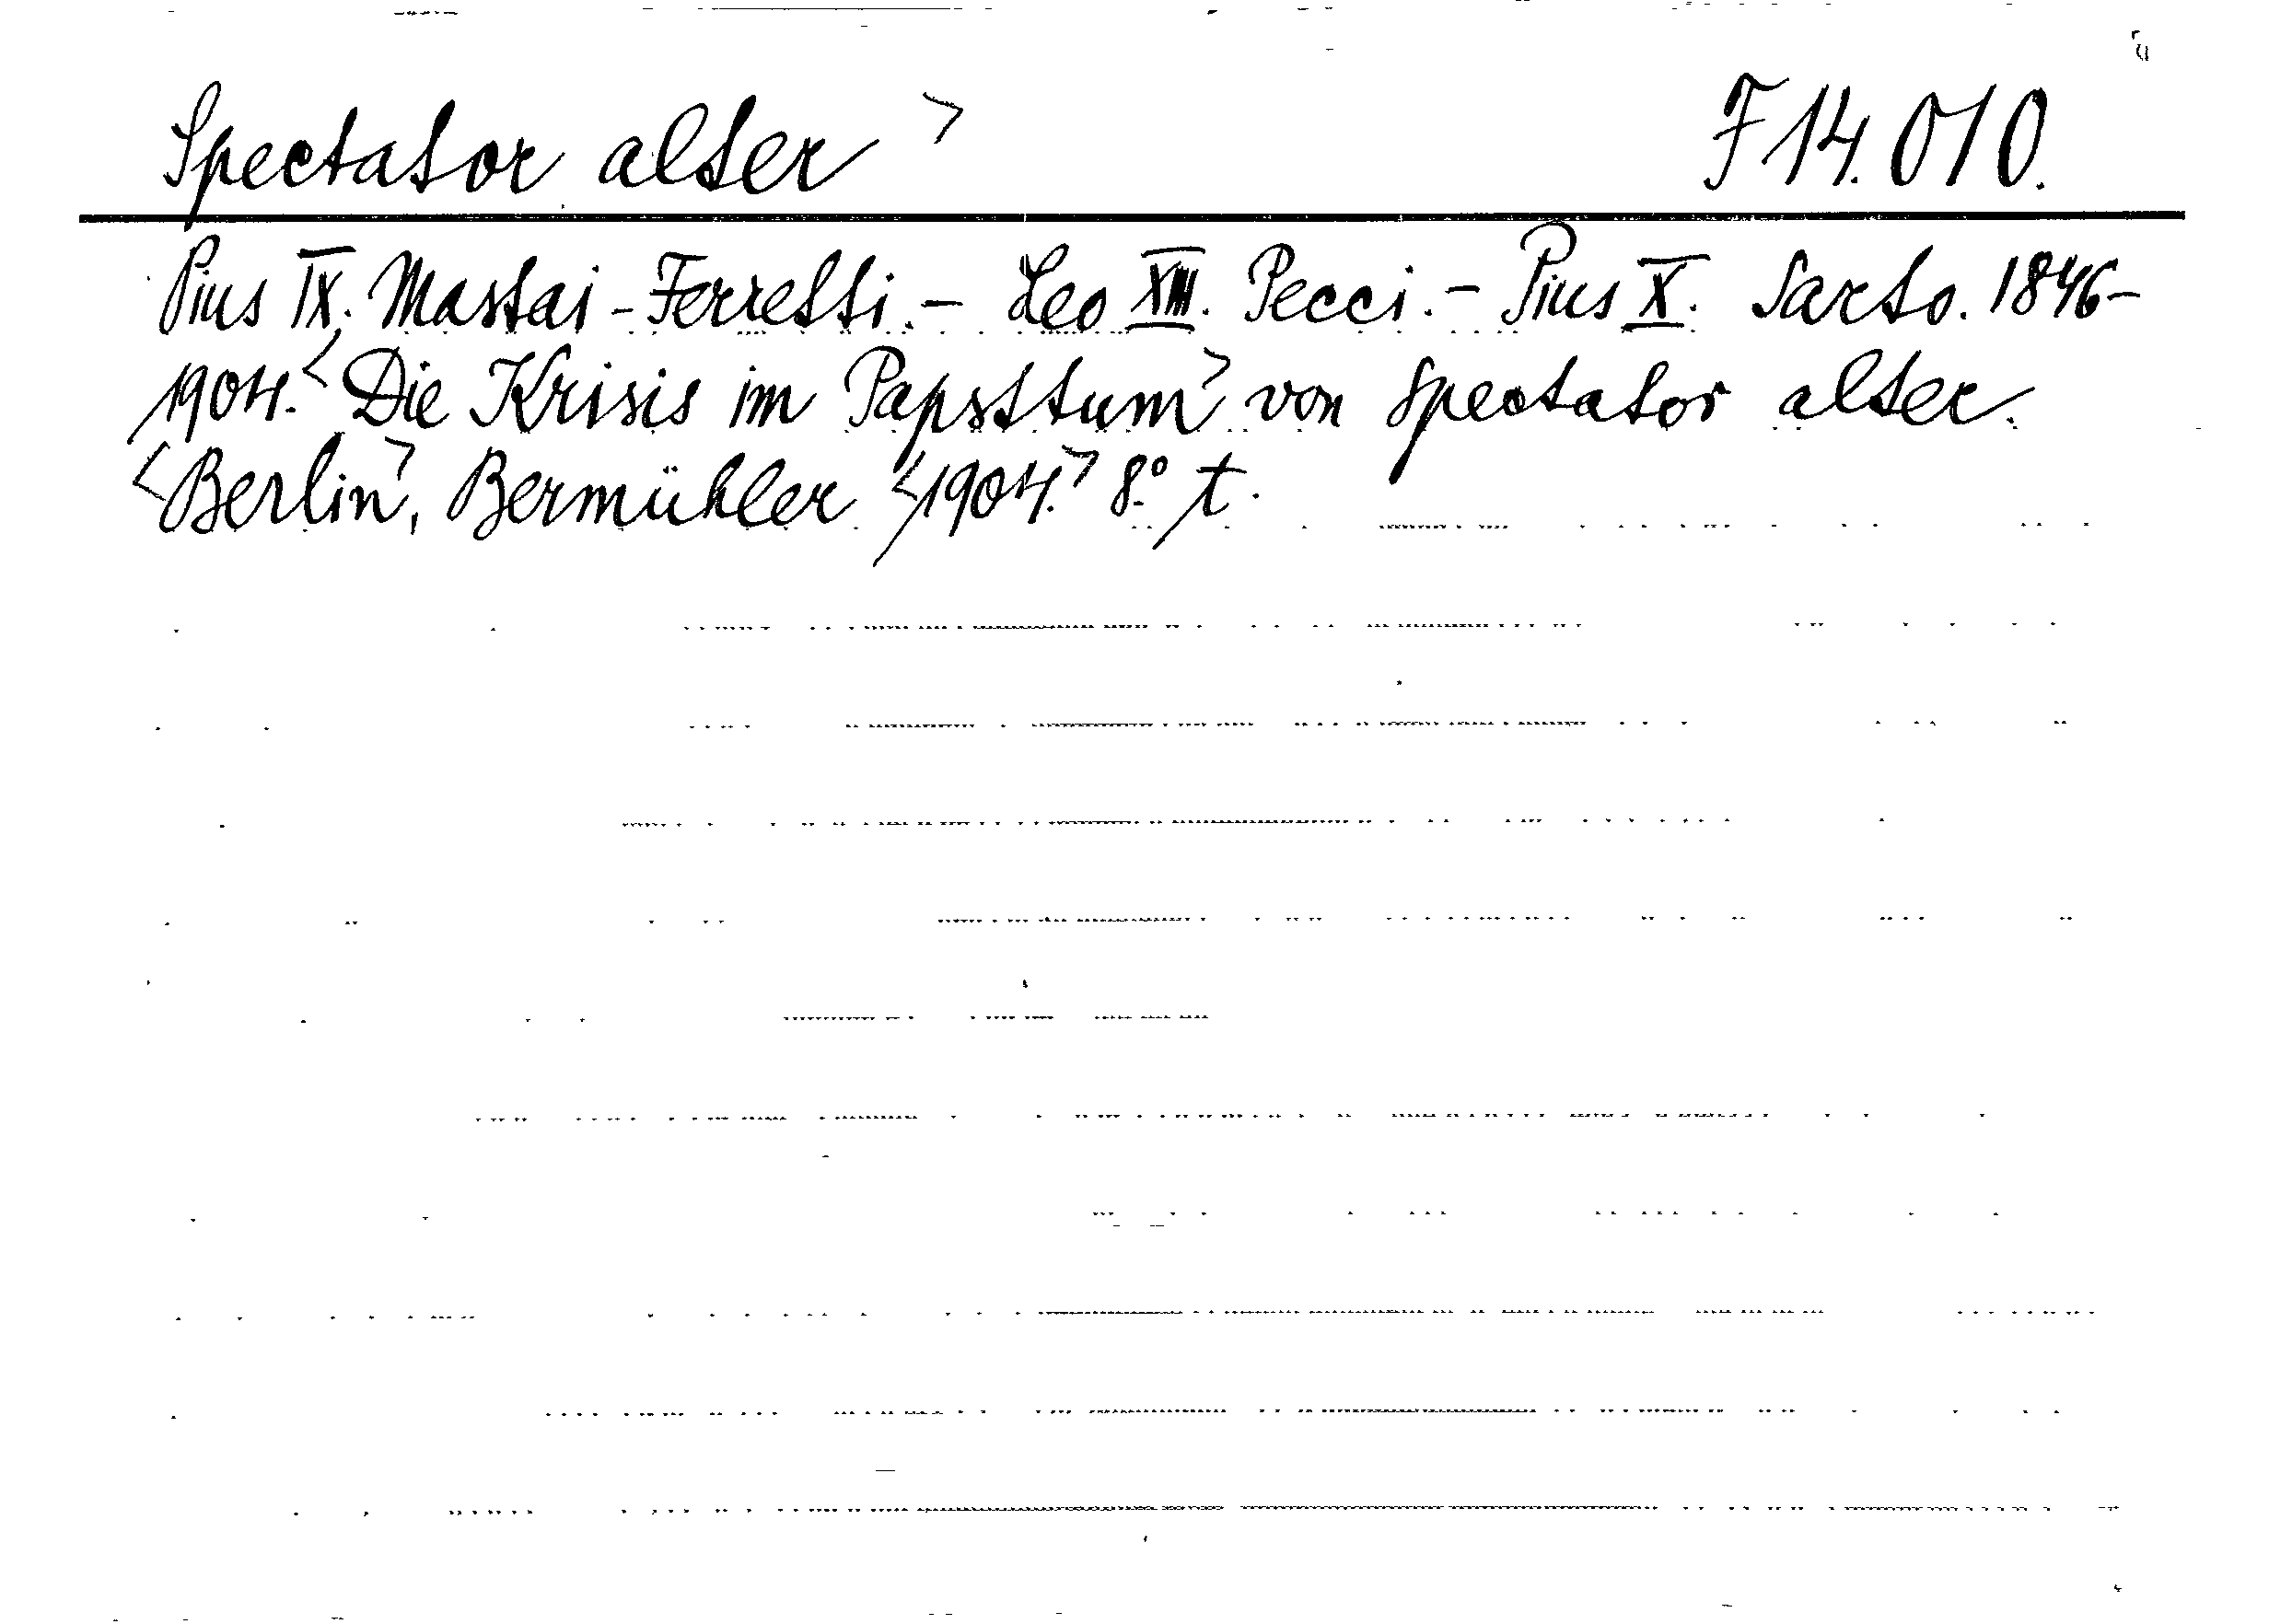 Spectator alter > F 14.010.
Pius IX. Mastai-Ferretti. - Leo XIII. Pecci. - Pius X. Sarto. 1846-
1904. <Die Krisis im Papsttum> von Spectator alter.
<Berlin>, Bermühler <1904.> 8.° t.